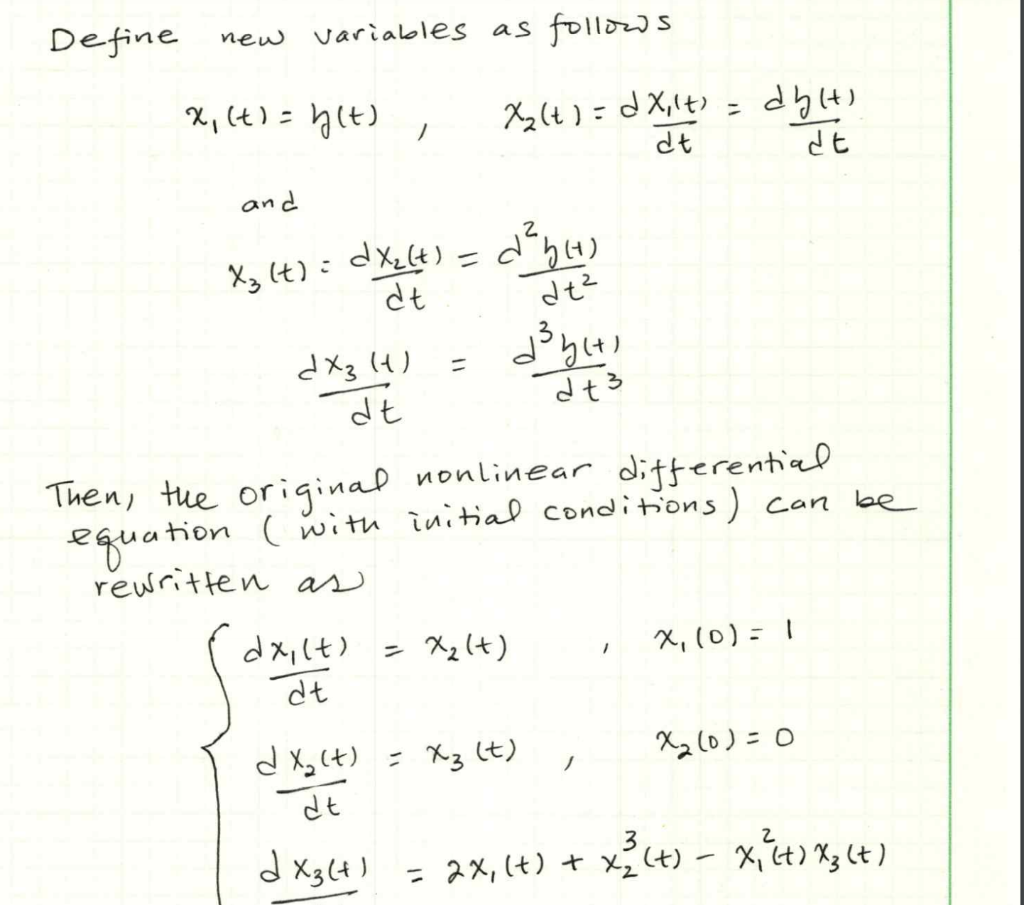 Define new variables as follows
x₁(t) = y(t) , x₂(t) = dx₁(t)/dt = dy(t)/dt
and
x₃(t) = dx₂(t)/dt = d²y(t)/dt²
dx₃(t)/dt = d³y(t)/dt³
Then, the original nonlinear differential
equation (with initial conditions) can be
rewritten as
{ dx₁(t)/dt = x₂(t) , x₁(0) = 1
dx₂(t)/dt = x₃(t) , x₂(0) = 0
dx₃(t) = 2x₁(t) + x₂³(t) − x₁²(t) x₃(t)